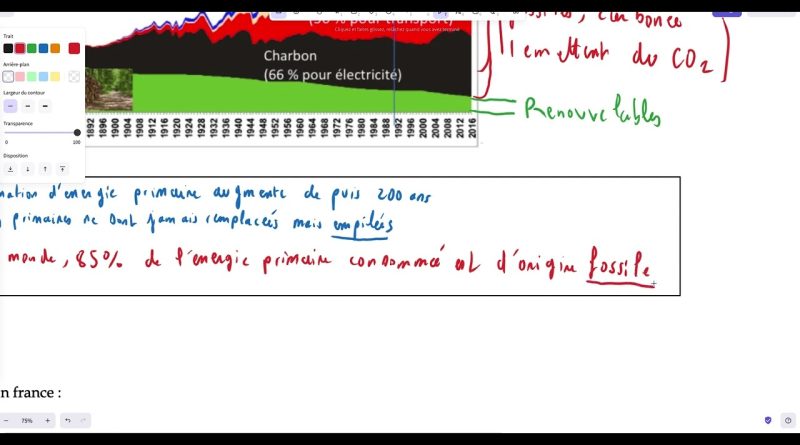 (50 % pour transport)
Cliquez et faites glissez, relâchez quand vous avez terminé
Trait
Arrière-plan
Largeur du contour
Transparence
0 100
Disposition
Charbon
(66 % pour électricité)
1892 1896 1900 1904 1908 1912 1916 1920 1924 1928 1932 1936 1940 1944 1948 1952 1956 1960 1964 1968 1972 1976 1980 1984 1988 1992 1996 2000 2004 2008 2012 2016
émettent du CO2
Renouvelables
mation d'énergie primaire augmente depuis 200 ans
primaires ne sont jamais remplacées mais empilées
monde, 85% de l'énergie primaire consommée est d'origine fossile
n france :
75%